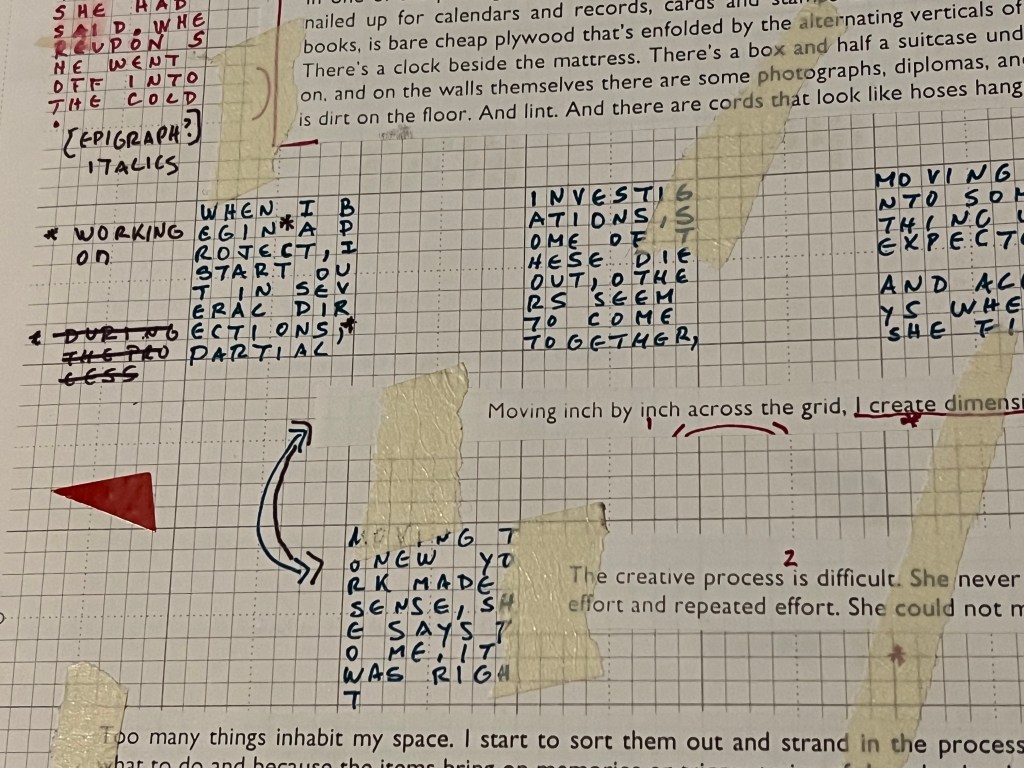 SHE HAD
SAID. WHE
REUPON S
HE WENT
OFF INTO
THE COLD
.
[EPIGRAPH?]
ITALICS
nailed up for calendars and records, cards and
books, is bare cheap plywood that's enfolded by the alternating verticals of
There's a clock beside the mattress. There's a box and half a suitcase und
on, and on the walls themselves there are some photographs, diplomas, an
is dirt on the floor. And lint. And there are cords that look like hoses hang
* WORKING
on
* DURING
THE PRO
CESS
WHEN I B
EGIN* A P
ROJECT, I
START OU
T IN SEV
ERAL DIR
ECTIONS,*
PARTIAL
INVESTIG
ATIONS, S
OME OF T
HESE DIE
OUT, OTHE
RS SEEM
TO COME
TOGETHER,
MOVING
NTO SOM
THING U
EXPECTE
AND ALC
YS WHE
SHE FI
Moving inch by inch across the grid, I create dimensi
1
MOVING T
O NEW YO
RK MADE
SENSE, SH
E SAYS T
O ME. IT
WAS RIGH
T
2
The creative process is difficult. She never
effort and repeated effort. She could not m
*
Too many things inhabit my space. I start to sort them out and strand in the process
what to do and because the items bring on memories